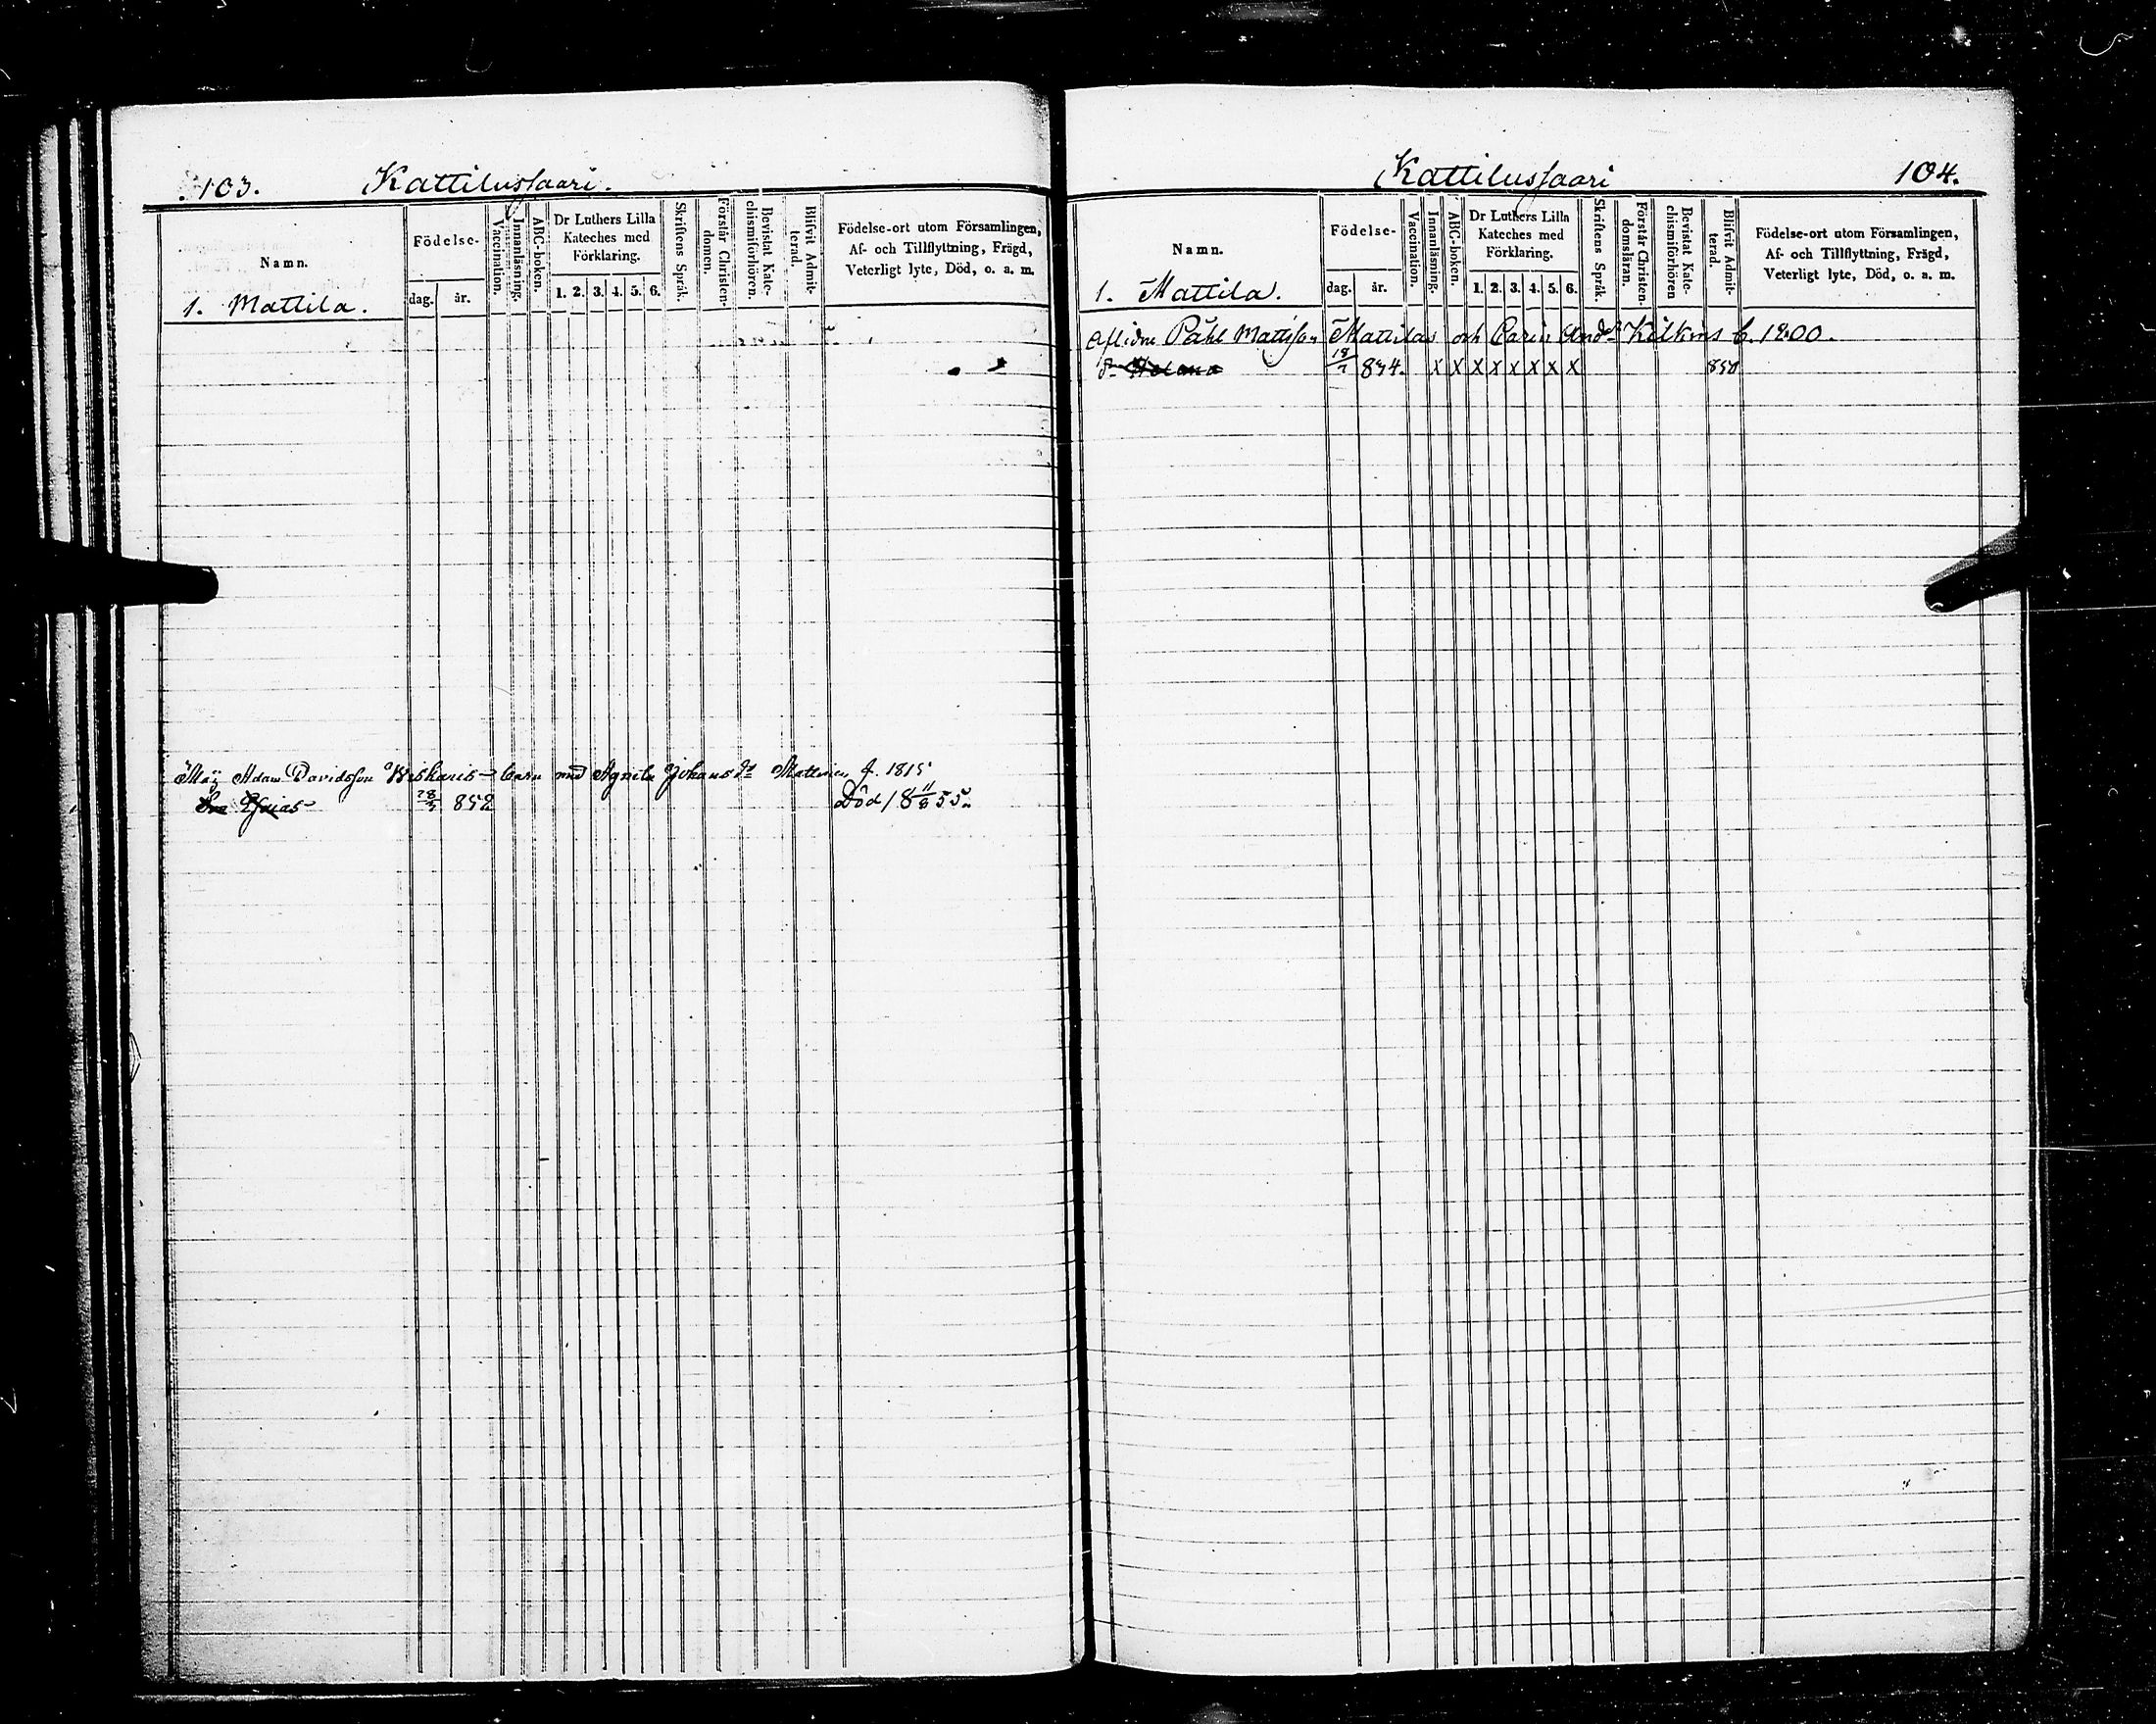 103. Kattilussaari.
Namn.
Födelse-
dag. år.
Vaccination.
Innanläsning.
ABC-boken.
Dr Luthers Lilla
Kateches med
Förklaring.
1. 2. 3. 4. 5. 6.
Skriftens Språk.
Förstår Christen-
domen.
Bevistat Kate-
chismiförhören.
Blifvit Admit-
terad.
Födelse-ort utom Församlingen,
Af- och Tillflyttning, Frägd,
Veterligt lyte, Död, o. a. m.
1. Mattila.
Adam Davidsson barn med Agneta Johansdr f. 1815
Son Esaias 28/5 852 Död 18 11/8 55.
Kattilussaari 104.
Namn.
Födelse-
dag. år.
Vaccination.
Innanläsning.
ABC-boken.
Dr Luthers Lilla
Kateches med
Förklaring.
1. 2. 3. 4. 5. 6.
Skriftens Språk.
Förstår Christen-
domsläran.
Bevistat Kate-
chismiförhören
Blifvit Admit-
terad.
Födelse-ort utom Församlingen,
Af- och Tillflyttning, Frägd,
Veterligt lyte, Död, o. a. m.
1. Mattila.
Aflidne Påhl Mattsson Mattilas och Carin Andr b. 1800.
dr Helena 18/7 834. X X X X X X X X 850